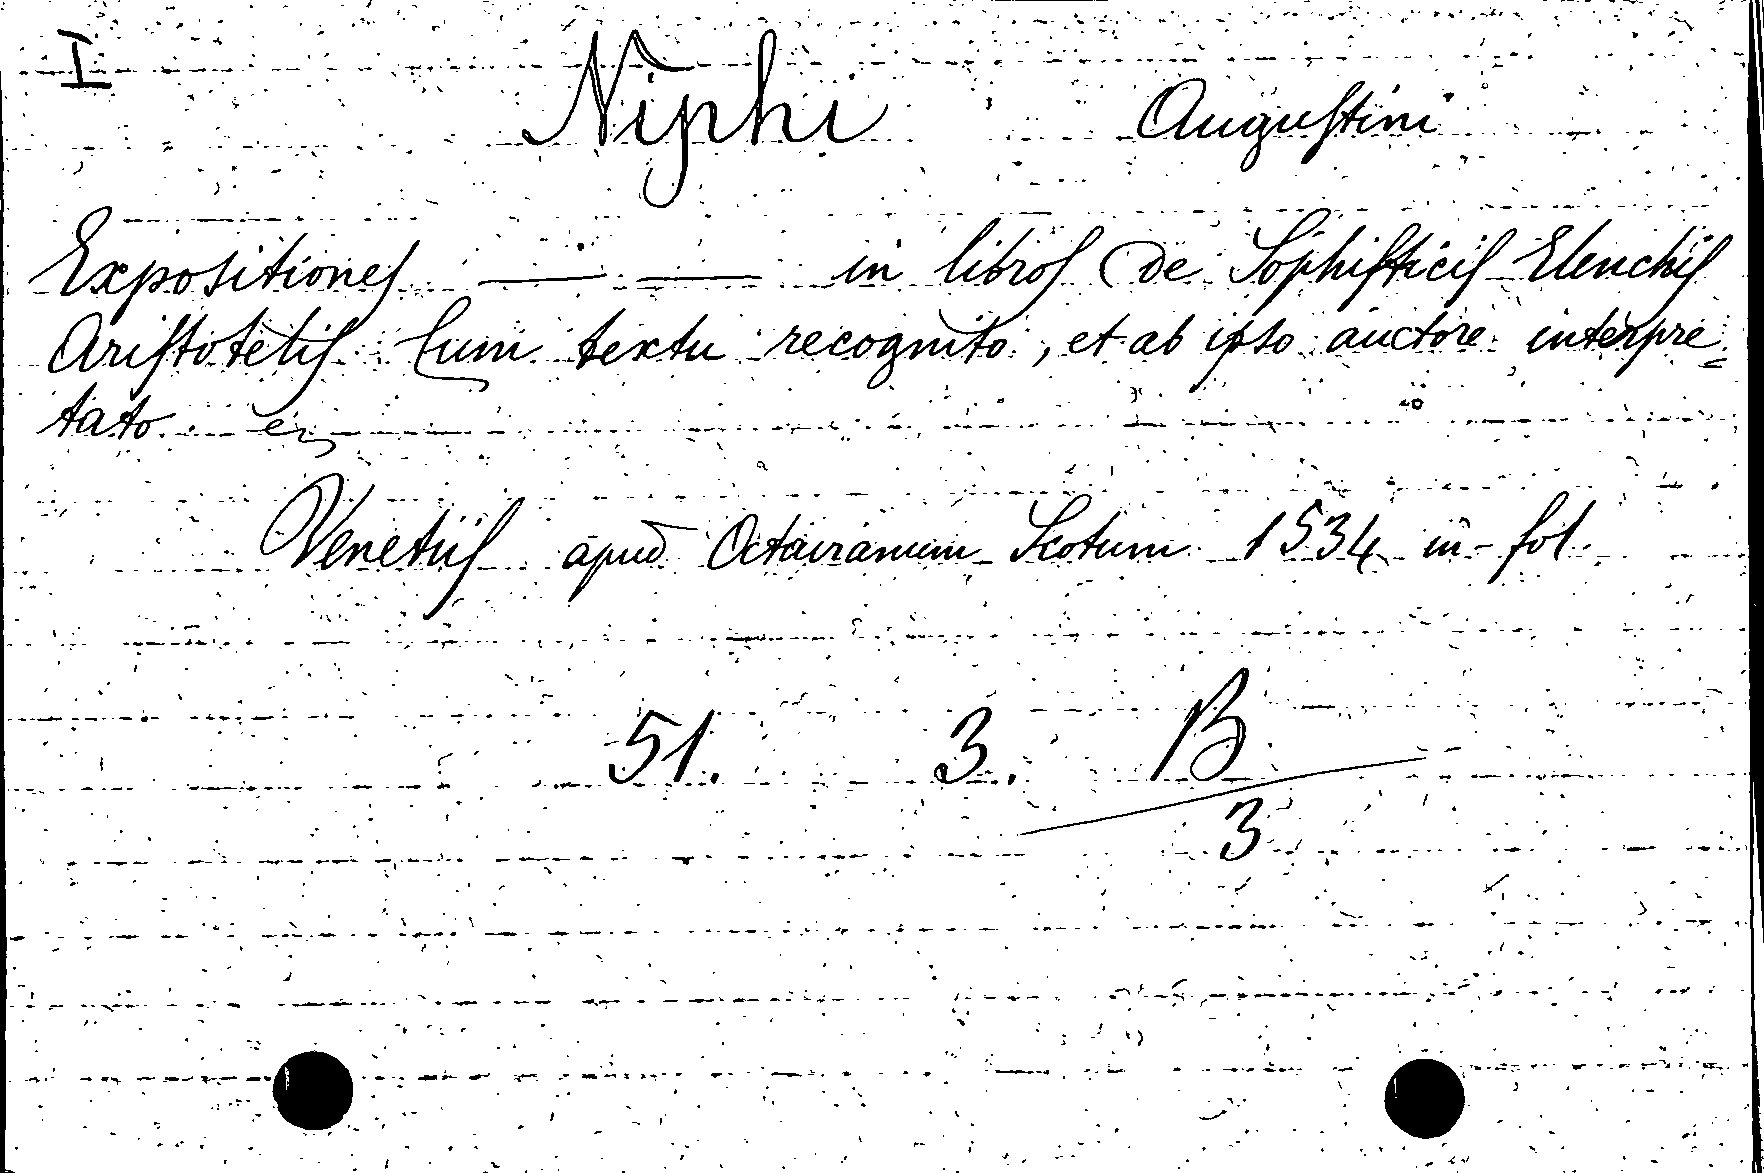 I
Niphi Augustini
Expositiones — — in libros de Sophisticis Elenchis
Aristotelis Cum textu recognito, et ab ipso auctore interpre=
tato
Venetiis apud Octavianum Scotum 1534 in-fol.
51. 3. B
3